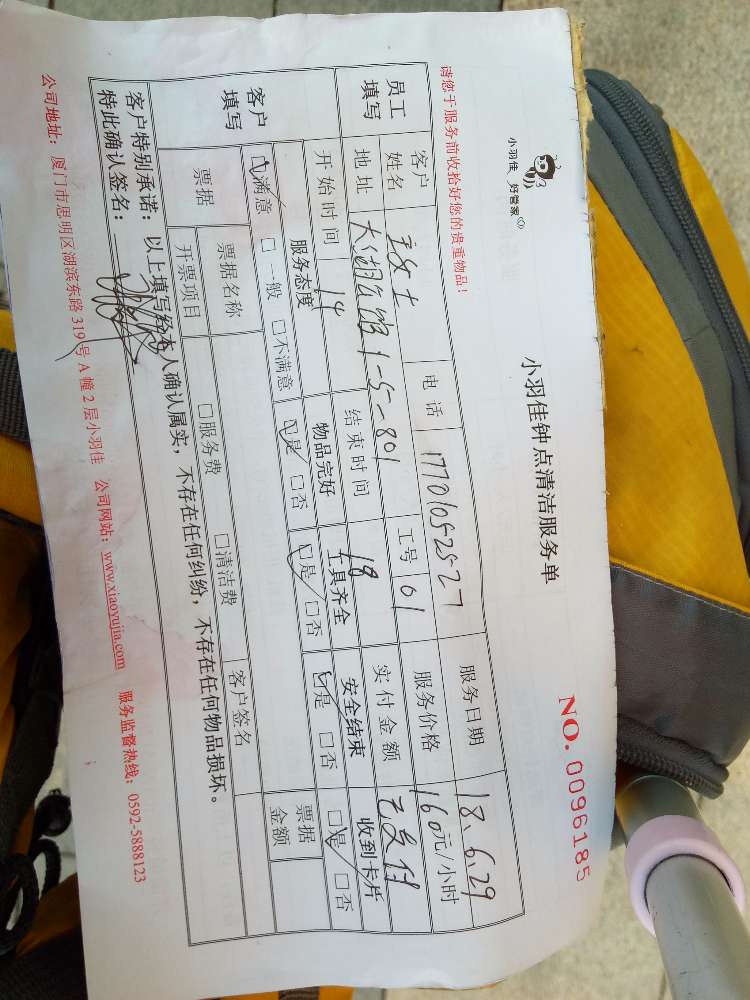 小羽佳 好管家
小羽佳钟点清洁服务单
NO. 0096185
请您于服务前收拾好您的贵重物品!
员工填写 客户姓名 女士 电话 17701052527 服务日期 18.6.29
地址 1-5-801 工号 01 服务价格 160元/小时
开始时间 14 结束时间 18 实付金额 已支付
客户填写 服务态度 物品完好 工具齐全 安全结束 收到卡片
☑满意 □一般 □不满意 ☑是 □否 ☑是 □否 ☑是 □否 ☑是 □否
票据 票据名称 客户签名 票据金额
开票项目 □服务费 □清洁费
客户特别承诺:以上填写经本人确认属实,不存在任何纠纷,不存在任何物品损坏。
特此确认签名:
公司地址:厦门市思明区湖滨东路319号A幢2层小羽佳 公司网站:www.xiaoyujia.com 服务监督热线:0592-5888123